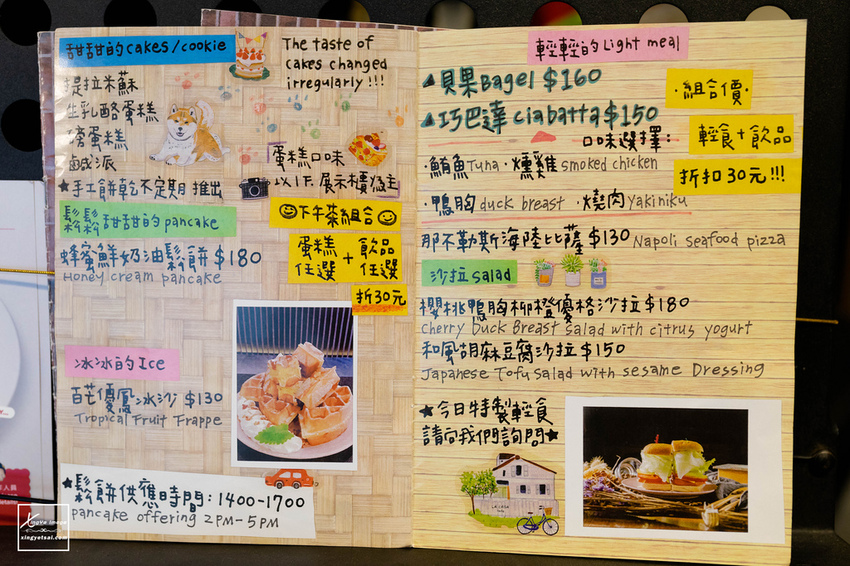 甜甜的cakes/cookie
The taste of
cakes changed
irregularly!!!
提拉米蘇
生乳酪蛋糕
磅蛋糕
鹹派
★手工餅乾不定期推出
蛋糕口味
以1F.展示櫃為主
鬆鬆甜甜的pancake
蜂蜜鮮奶油鬆餅$180
Honey cream pancake
下午茶組合
蛋糕任選+飲品任選
折30元
冰冰的Ice
百芒優鳳冰沙 $130
Tropical Fruit Frappe
★鬆餅供應時間:1400-1700
pancake offering 2PM-5PM
輕輕的Light meal
▲貝果Bagel $160
▲巧巴達Ciabatta$150
·組合價·
輕食+飲品
折扣30元!!!
口味選擇:
·鮪魚Tuna·燻雞smoked chicken
·鴨胸duck breast·燒肉Yakiniku
那不勒斯海陸比薩$130 Napoli seafood pizza
沙拉salad
櫻桃鴨胸柳橙優格沙拉$180
Cherry Duck Breast salad with citrus yogurt
和風胡麻豆腐沙拉$150
Japanese Tofu Salad with sesame Dressing
★今日特製輕食
請向我們詢問★
Xingye image
xingyetsai.com